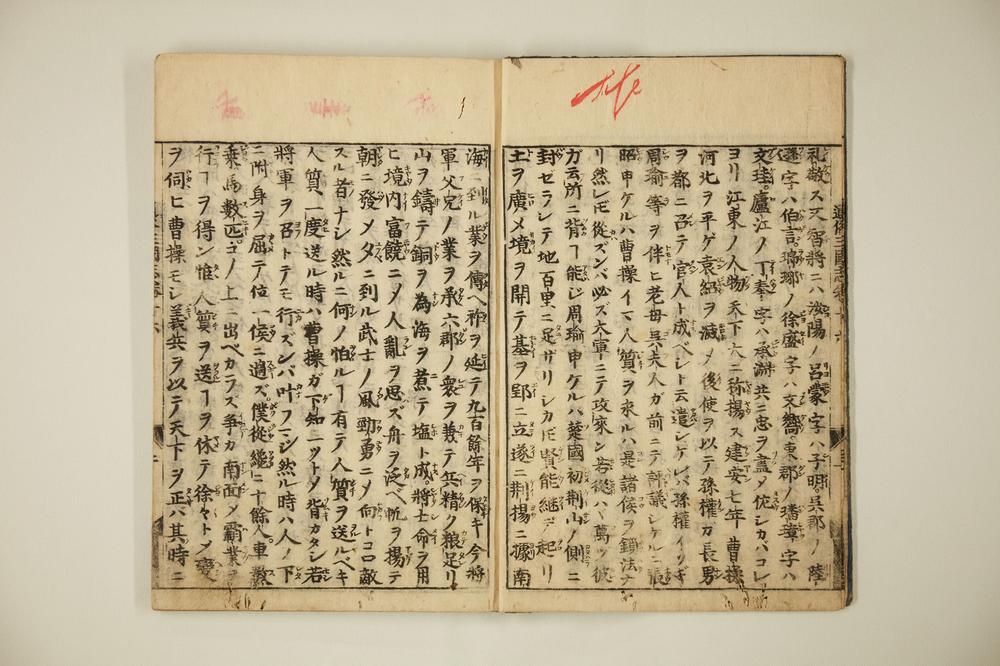 礼敬ス又智將ニハ汝陽ノ呂蒙字ハ子明吳郡ノ陸
遜字ハ伯言瑯琊ノ徐盛字ハ文嚮東郡ノ潘璋字ハ
文珪廬江ノ丁奉字ハ承淵共ニ忠ヲ盡メ佐シカバコレ
ヨリ江東ノ人物天下ニ称揚ス建安七年曹操
河北ヲ平ゲ袁紹ヲ滅メ後使ヲ以テ孫權ガ長男
ヲ都ニ召テ官人ト成ベシト云遣シケレバ孫權イソギ
周瑜等ヲ伴ヒ老母吳夫人ガ前ニテ評議シケルニ張
昭申ケルハ曹操イマ人質ヲ求ルハ是諸侯ヲ鎖法ナ
リ然レ𪜈從ズンバ必ズ大軍ニテ攻來ン若從ハヾ萬ヅ彼
ガ云所ニ背ヿ能ジ周瑜申ケルハ葉國初荆山ノ側ニ
封ゼラレテ地百里ニ足ザリシカ𪜈賢能継デ起リ
土ヲ廣メ境ヲ開テ基ヲ郢ニ立遂ニ荆揚ニ據南
海ニ到ル業ヲ傳ヘ祚ヲ延テ九百餘年ヲ保キ今將
軍父兄ノ業ヲ承六郡ノ衆ヲ兼テ兵精ク粮足リ
山ヲ鑄テ銅ヲ為海ヲ煮テ塩ト成將士命ヲ用
ヒ境内冨饒ニメ人亂ヲ思ズ舟ヲ泛ベ帆ヲ揚テ
朝ニ發メタニ到ル武士ノ風勁勇ニメ向トコロ敵
スル者ナシ然ルニ何ノ怕ルヿ有テ人質ヲ送ルベキ
人質一度送ル時ハ曹操ガ下知一ツトメ皆カタシ若
將軍ヲ召トテモ行ズンバ叶フマジ然ル時ハ人ノ下
ニ附身ヲ屈テ位一侯ニ過ズ僕從纔ニ十餘人車數
乗馬數匹コノ上ニ出ベカラズ争カ南面メ覇業ヲ
行ヿヲ得ン惟人質ヲ送ヿヲ休テ徐々トメ變
ヲ伺ヒ曹操モシ義兵ヲ以テ天下ヲ正バ其時ニ